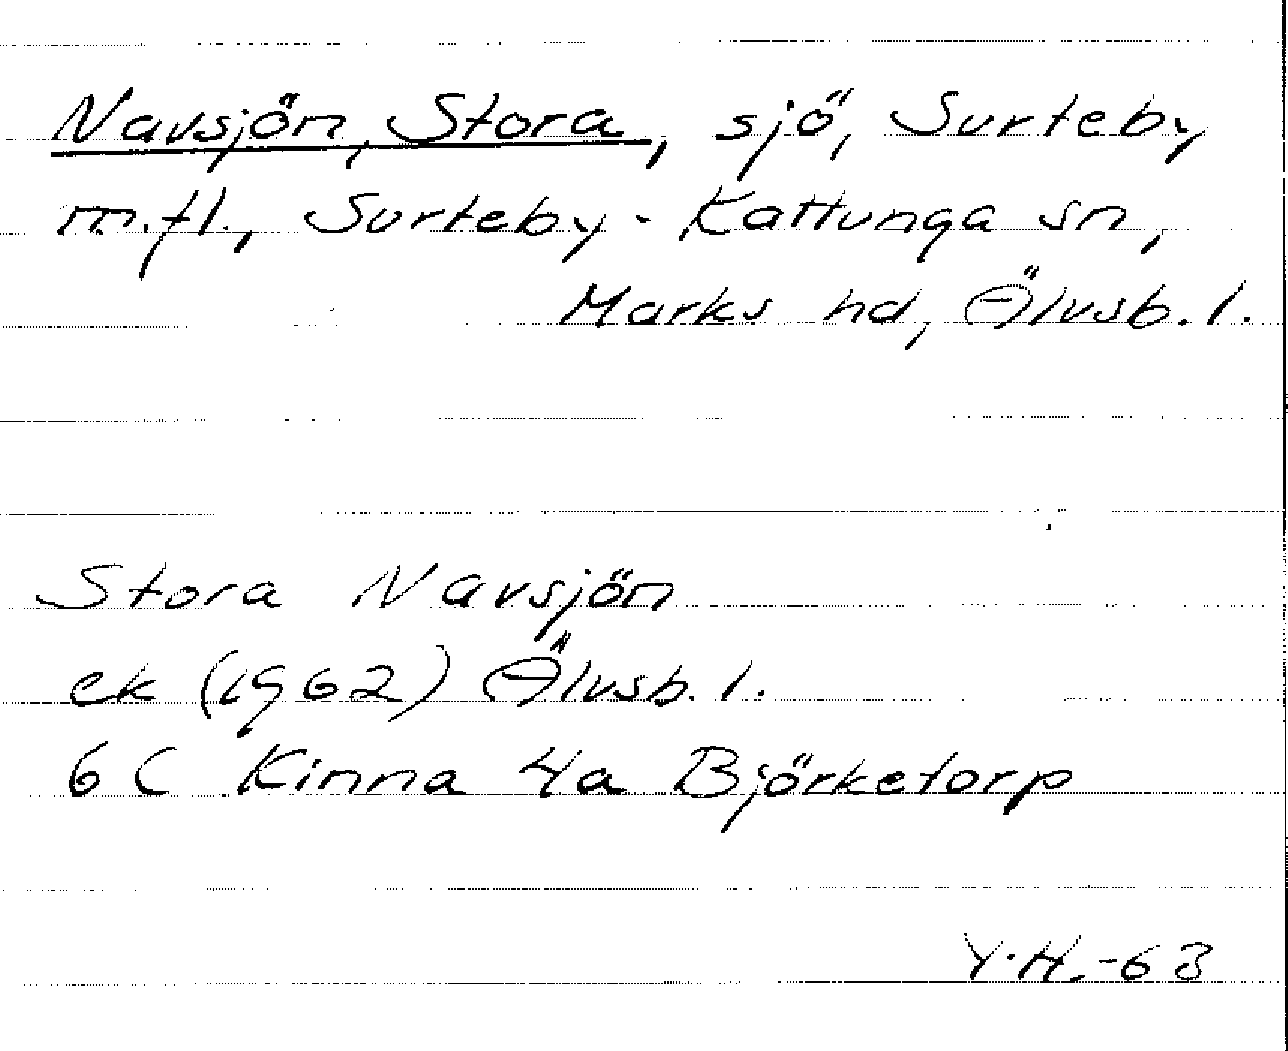 Navsjön, Stora, sjö, Surteby
m.fl., Surteby-Kattunga sn,
Marks hd, Älvsb. l.
Stora Navsjön
ek (1962) Älvsb. l.
6 C Kinna 4a Björketorp
Y.H.-63